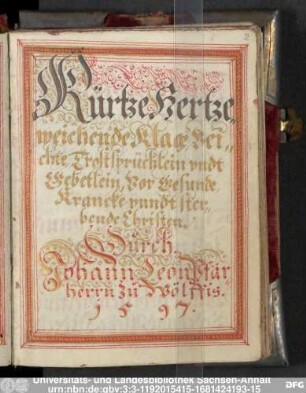 Kürtze Hertze,
weichende Klag Bei,,
chte Trostsprücklein vndt
Gebetlein, Vor Gesunde
Krancke vnndt ster,,
bende Christen.
Durch
Johann Leon Pfar
herrn zu Wölffis.
1597.
2
Universitäts- und Landesbibliothek Sachsen-Anhalt
urn:nbn:de:gbv:3:3-1192015415-1681424193-15
DFG